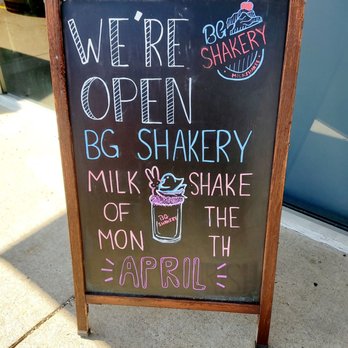 WE'RE
OPEN
BG
SHAKERY
MILKSHAKES
BG SHAKERY
MILK SHAKE
OF THE
MON TH
BG
SHAKERY
APRIL